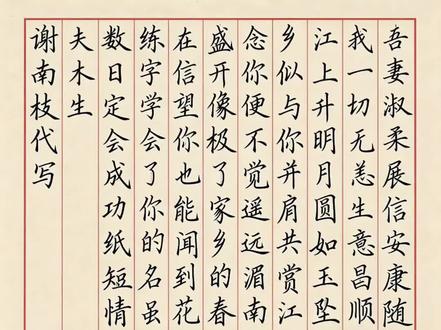 吾妻淑柔展信安康随
我一切无恙生意昌顺
江上升明月圆如玉坠
乡似与你并肩共赏江
念你便不觉遥远湄南
盛开像极了家乡的春
在信望你也能闻到花
练字学会了你的名虽
数日定会成功纸短情
夫木生
谢南枝代写